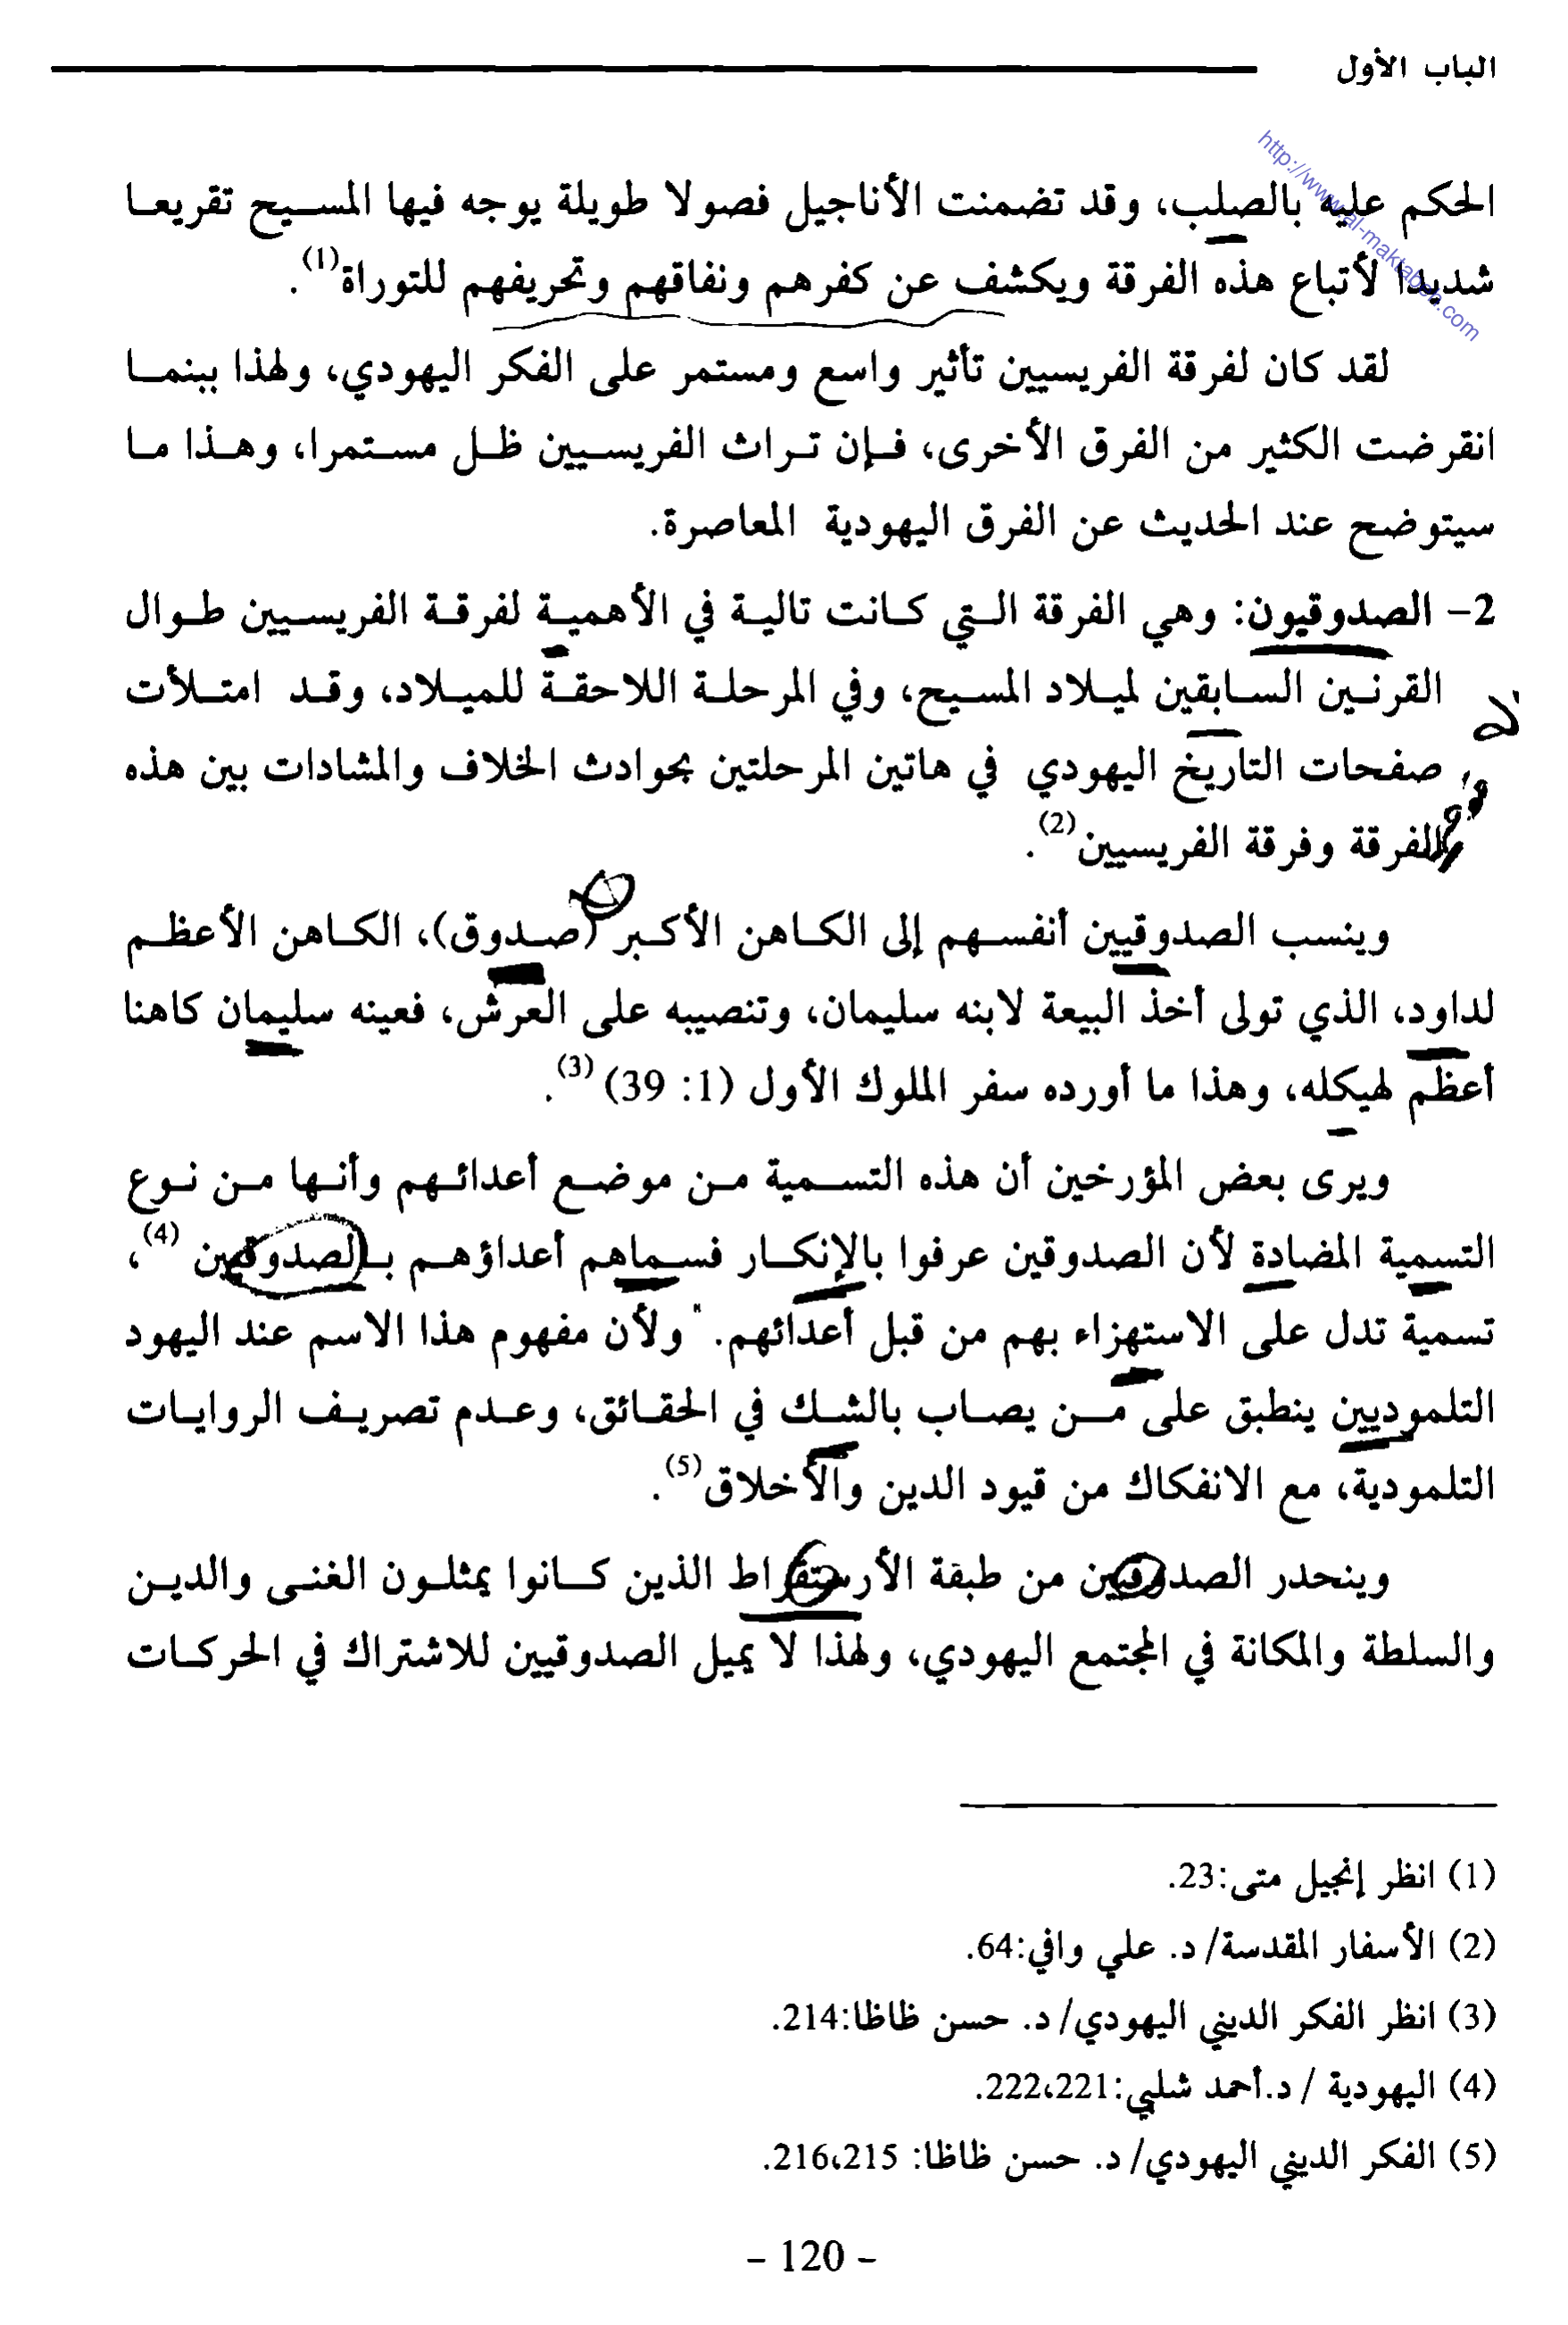 الباب الأول
http://www.al-maktabeh.com
الحكم عليه بالصلب، وقد تضمنت الأناجيل فصولا طويلة يوجه فيها المسيح تقريعا
شديدا لأتباع هذه الفرقة ويكشف عن كفرهم ونفاقهم وتحريفهم للتوراة(1).
لقد كان لفرقة الفريسيين تأثير واسع ومستمر على الفكر اليهودي، ولهذا بينما
انقرضت الكثير من الفرق الأخرى، فإن تراث الفريسيين ظل مستمرا، وهذا ما
سيتوضح عند الحديث عن الفرق اليهودية المعاصرة.
2- الصدوقيون: وهي الفرقة التي كانت تالية في الأهمية لفرقة الفريسيين طوال
القرنين السابقين لميلاد المسيح، وفي المرحلة اللاحقة للميلاد، وقد امتلأت
صفحات التاريخ اليهودي في هاتين المرحلتين بحوادث الخلاف والمشادات بين هذه
الفرقة وفرقة الفريسيين(2).
وينسب الصدوقيين أنفسهم إلى الكاهن الأكبر (صدوق)، الكاهن الأعظم
لداود، الذي تولى أخذ البيعة لابنه سليمان، وتنصيبه على العرش، فعينه سليمان كاهنا
أعظم لهيكله، وهذا ما أورده سفر الملوك الأول (1: 39) (3).
ويرى بعض المؤرخين أن هذه التسمية من موضع أعدائهم وأنها من نوع
التسمية المضادة لأن الصدوقين عرفوا بالإنكار فسماهم أعداؤهم بالصدوقين (4)،
تسمية تدل على الاستهزاء بهم من قبل أعدائهم. ولأن مفهوم هذا الاسم عند اليهود
التلموديين ينطبق على من يصاب بالشك في الحقائق، وعدم تصريف الروايات
التلمودية، مع الانفكاك من قيود الدين والأخلاق(5).
وينحدر الصدوقيين من طبقة الأرستقراط الذين كانوا يمثلون الغنى والدين
والسلطة والمكانة في المجتمع اليهودي، ولهذا لا يميل الصدوقيين للاشتراك في الحركات
(1) انظر إنجيل متى:23.
(2) الأسفار المقدسة/ د. علي وافي:64.
(3) انظر الفكر الديني اليهودي/ د. حسن ظاظا:214.
(4) اليهودية / د.أحمد شلبي:222،221.
(5) الفكر الديني اليهودي/ د. حسن ظاظا: 216،215.
- 120 -